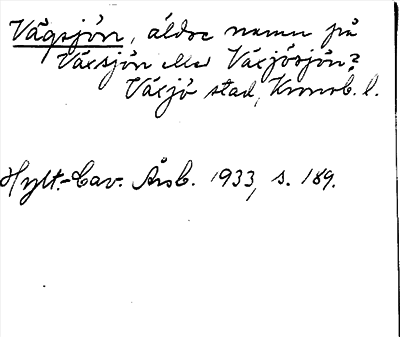 Vägsjön, äldre namn på
Växsjön eller Växjösjön?
Växjö stad, Kronob. l.
Hylt.-Cav. Årsb. 1933, s. 189.